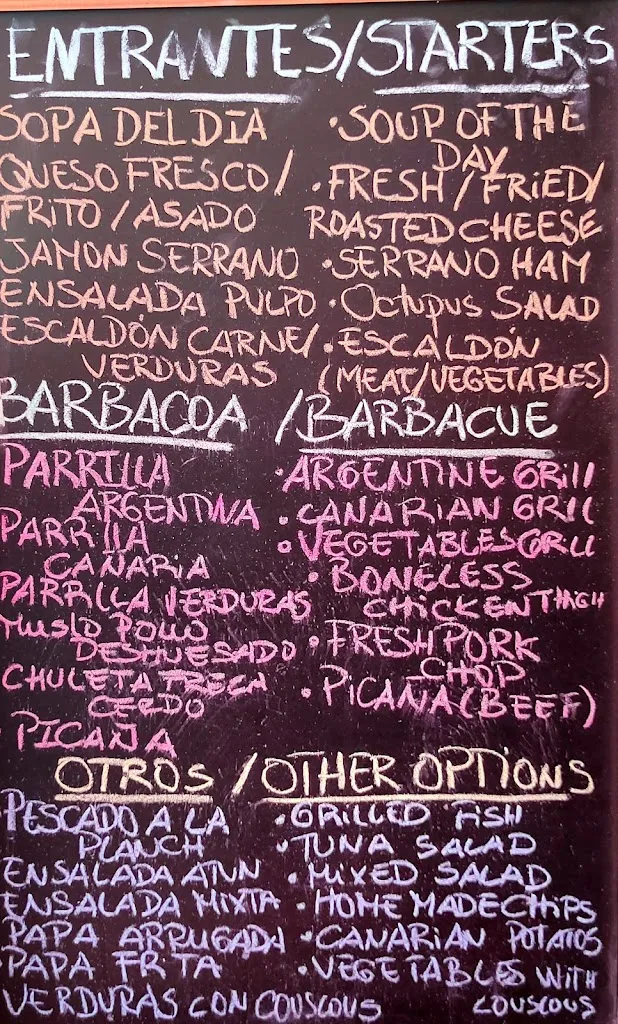 ENTRANTES/STARTERS
SOPA DEL DIA
QUESO FRESCO/
FRITO/ASADO
JAMON SERRANO
ENSALADA PULPO
ESCALDÓN CARNE/
VERDURAS
• SOUP OF THE
DAY
• FRESH/FRiED/
ROASTED CHEESE
• SERRANO HAM
• Octupus SALAD
• ESCALDÓN
(MEAT/VEGETABLES)
BARBACOA / BARBACUE
PARRILLA
ARGENTINA
PARRILLA
CAÑARiA
PARRILLA VERDURAS
MUSLO POLLO
DESHUESADO
CHULETA FRESCA
CERDO
PICAÑA
• ARGENTINE GRill
• CANARIAN GRILL
• VEGETABLES GRILL
• BONELESS
CHICKEN THIGH
• FRESH PORK
CHOP
• PICANA (BEEF)
OTROS / OTHER OPTIONS
PESCADO A LA
PLANCH
ENSALADA ATUN
ENSALADA MIXTA
PAPA ARRUGADA
PAPA FRITA
VERDURAS CON COUSCOUS
• GRILLED FISH
• TUNA SALAD
• MIXED SALAD
• HOME MADE CHiPS
• CANARIAN POTATOS
• VEGETABLES WITH
COUSCOUS